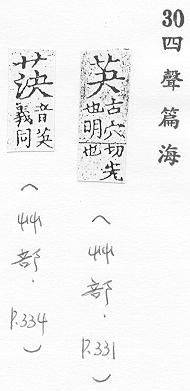 30四聲篇海
英 古穴切先也明也
(艸部.P.331)
音英義同
(艸部.P.334)